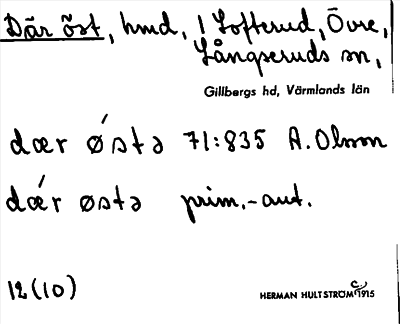 Där öst, hmd, i Lofterud, Övre,
Långseruds sn,
Gillbergs hd, Värmlands län
dær ǿstə 71:835 A. Olsson
dǽr østə prim.-aut.
12(10)
HERMAN HULTSTRÖM 1915